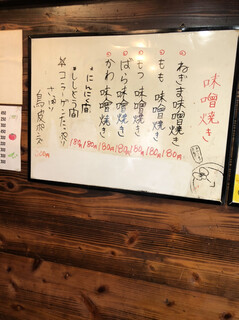 味噌焼き
ねぎま味噌焼き 180円
もも味噌焼き 180円
もつ味噌焼き 180円
ばら味噌焼き 180円
かわ味噌焼き 180円
にんにく間 180円
ししとう間 180円
☆コラーゲンたっぷり
さっぱり
鳥皮ポン酢